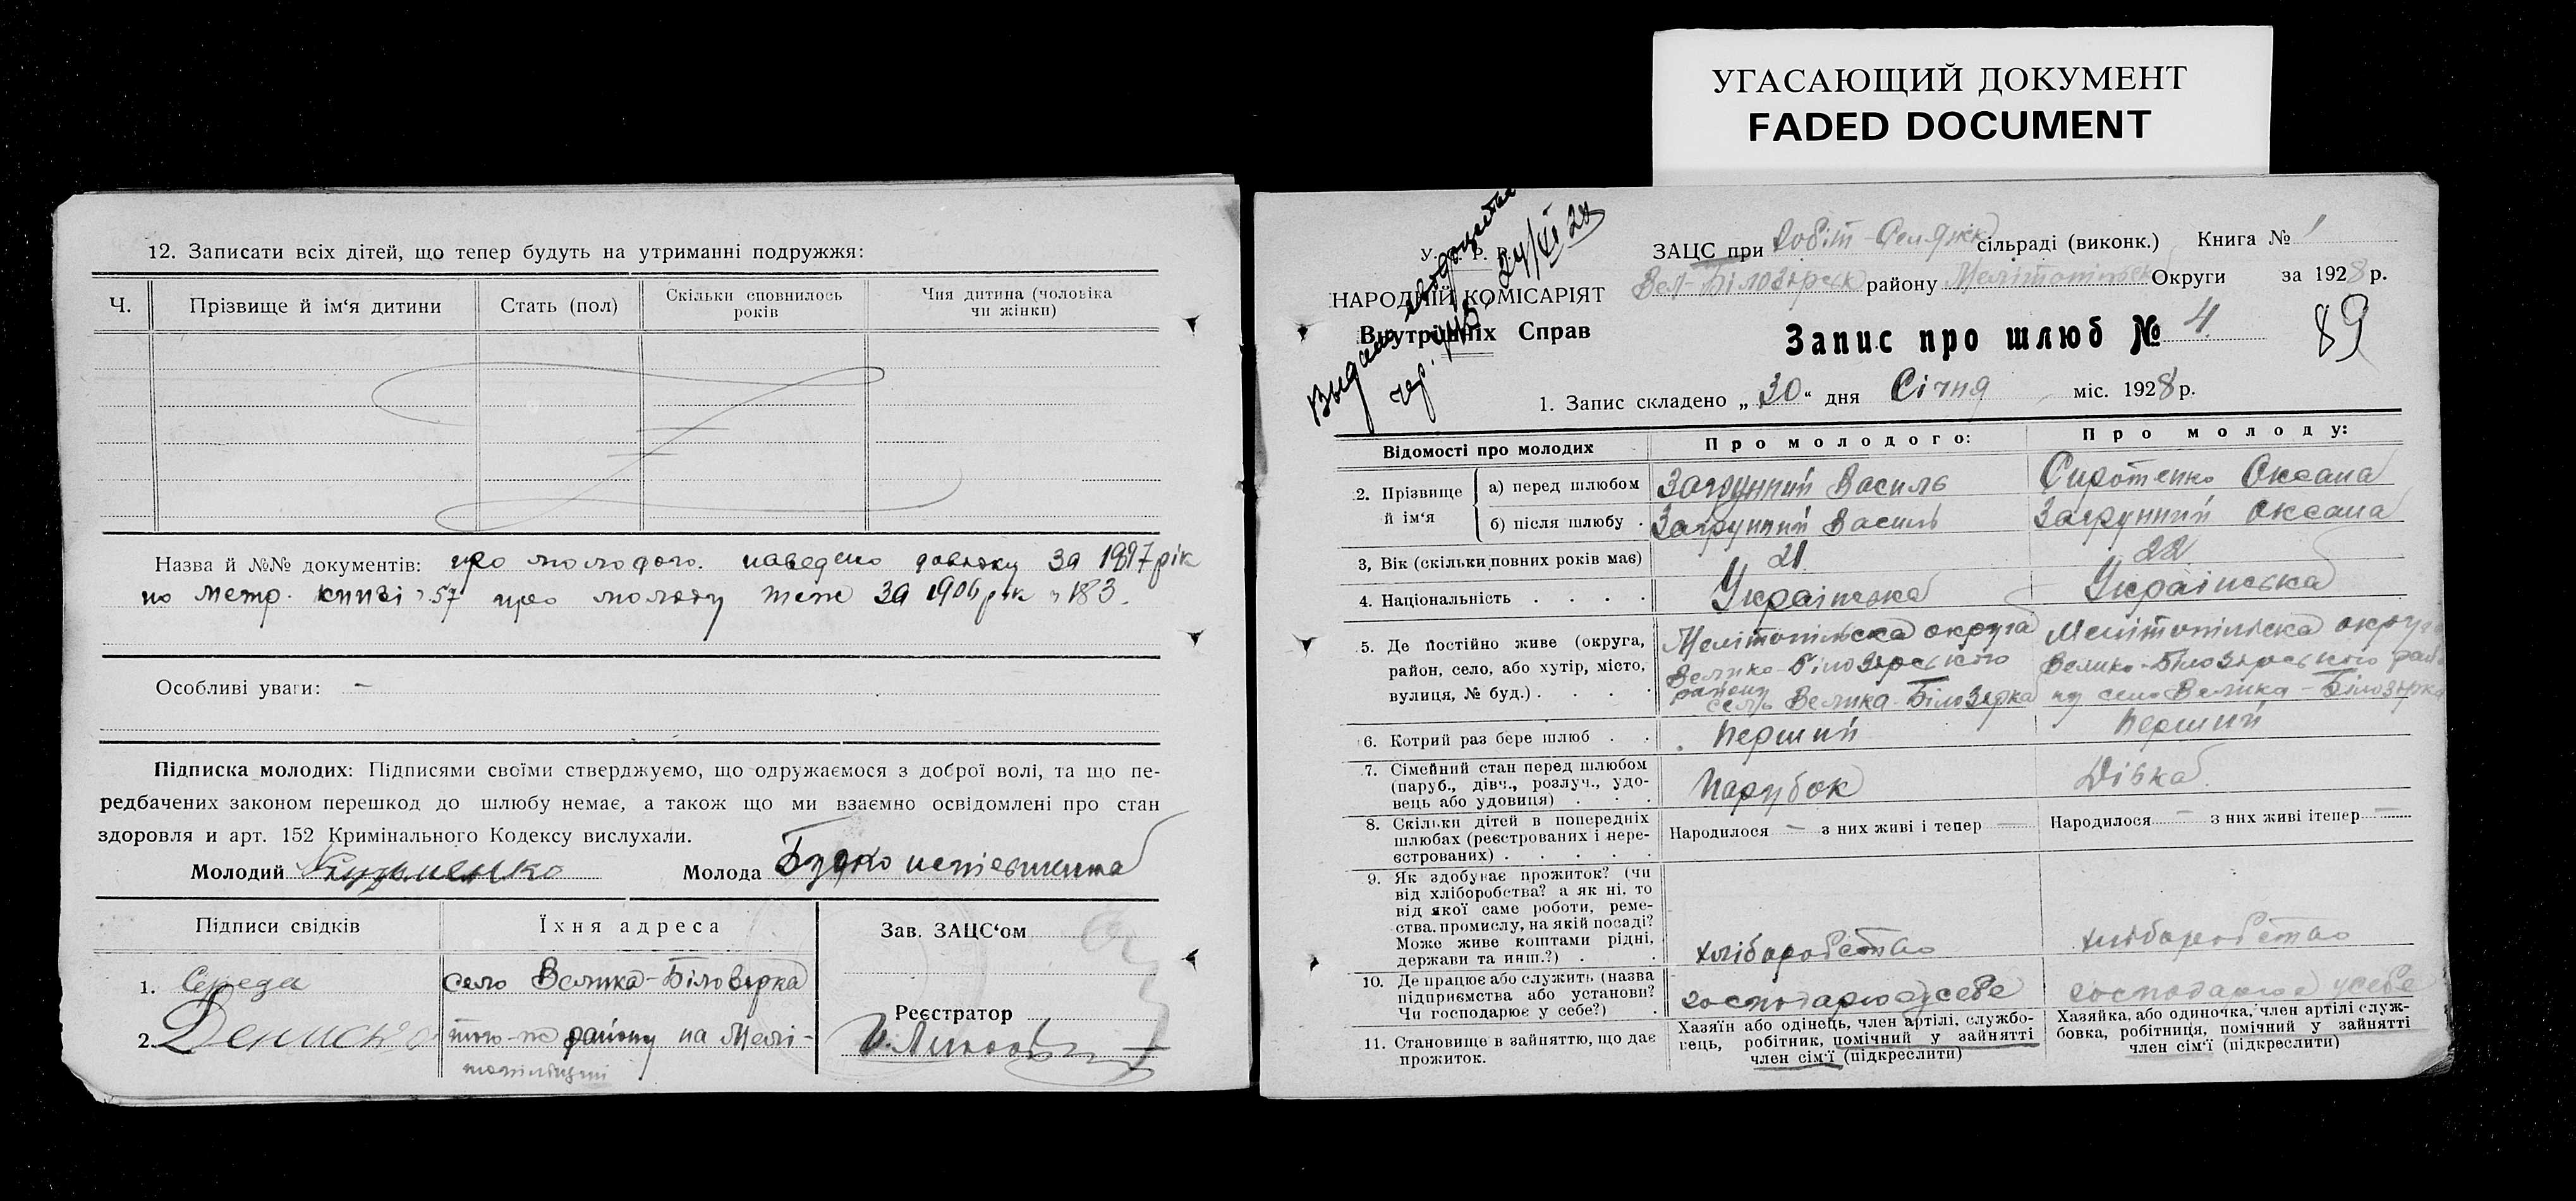 УГАСАЮЩИЙ ДОКУМЕНТ
FADED DOCUMENT
12. Записати всіх дітей, що тепер будуть на утриманні подружжя:
Ч. Прізвище й ім‘я дитини Стать (пол) Скільки сповнилось років Чия дитина (чоловіка чи жінки)
Назва й №№ документів: про молодого. наведено довідку за 1897 рік
по метр. книзі 57 про молоду теж за 1906 рік 183.
Особливі уваги: –
Підписка молодих: Підписями своїми стверджуємо, що одружаємося з доброї волі, та що пе-
редбачених законом перешкод до шлюбу немає, а також що ми взаємно освідомлені про стан
здоровля и арт. 152 Кримінального Кодексу вислухали.
Молодий Кузьменко Молода Будко неписьменна
Підписи свідків Їхня адреса Зав. ЗАЦС‘ом
1. Середа село Велика-Білозірка
Реєстратор
2. Денисенко того-ж району на Мелі-
топільщині
У. Р. Р.
НАРОДНІЙ КОМІСАРІЯТ
Внутрішніх Справ
24/XI 28
ЗАЦС при Робіт-Селянск сільраді (виконк.) Книга № 1
Вел-Білозірськ району Мелітопільськ Округи за 1928 р.
Запис про шлюб № 4
89
1. Запис складено „30“ дня Січня міс. 1928 р.
Відомості про молодих Про молодого: Про молоду:
2. Прізвище й ім‘я а) перед шлюбом Загрунний Василь Сиротенко Оксана
б) після шлюбу Загрунний Василь Загрунний Оксана
3, Вік (скільки повних років має) 21 22
4. Національність Українська Українська
5. Де постійно живе (округа, Мелітопільска округа Мелітопільска округа
район, село, або хутір, місто, Велико-Білозірського Велико-Білозірського райо
вулиця, № буд.) району село Велика-Білозірка ну село Велика-Білозірка
6. Котрий раз бере шлюб Перший Перший
7. Сімейний стан перед шлюбом
(паруб., дівч., розлуч., удо-
вець або удовиця) Парубок Дівка
8. Скільки дітей в попередніх
шлюбах (реєстрованих і нере-
єстрованих) Народилося – з них живі і тепер – Народилося – з них живі ітепер –
9. Як здобуває прожиток? (чи
від хліборобства? а як ні. то
від якої саме роботи, реме-
ства. промислу, на якій посаді?
Може живе коштами рідні,
держави та инш.?) хліборобство хліборобство
10. Де працює або служить (назва
підприємства або установи?
Чи господарює у себе?) господарює усебе господарює усебе
11. Становище в зайняттю, що дає
прожиток.
Хазяїн або одінець, член артілі, службо-
вець, робітник, помічний у зайнятті
член сім‘ї (підкреслити)
Хазяйка, або одиночка, член артілі служ-
бовка, робітниця, помічний у зайнятті
член сім‘ї (підкреслити)